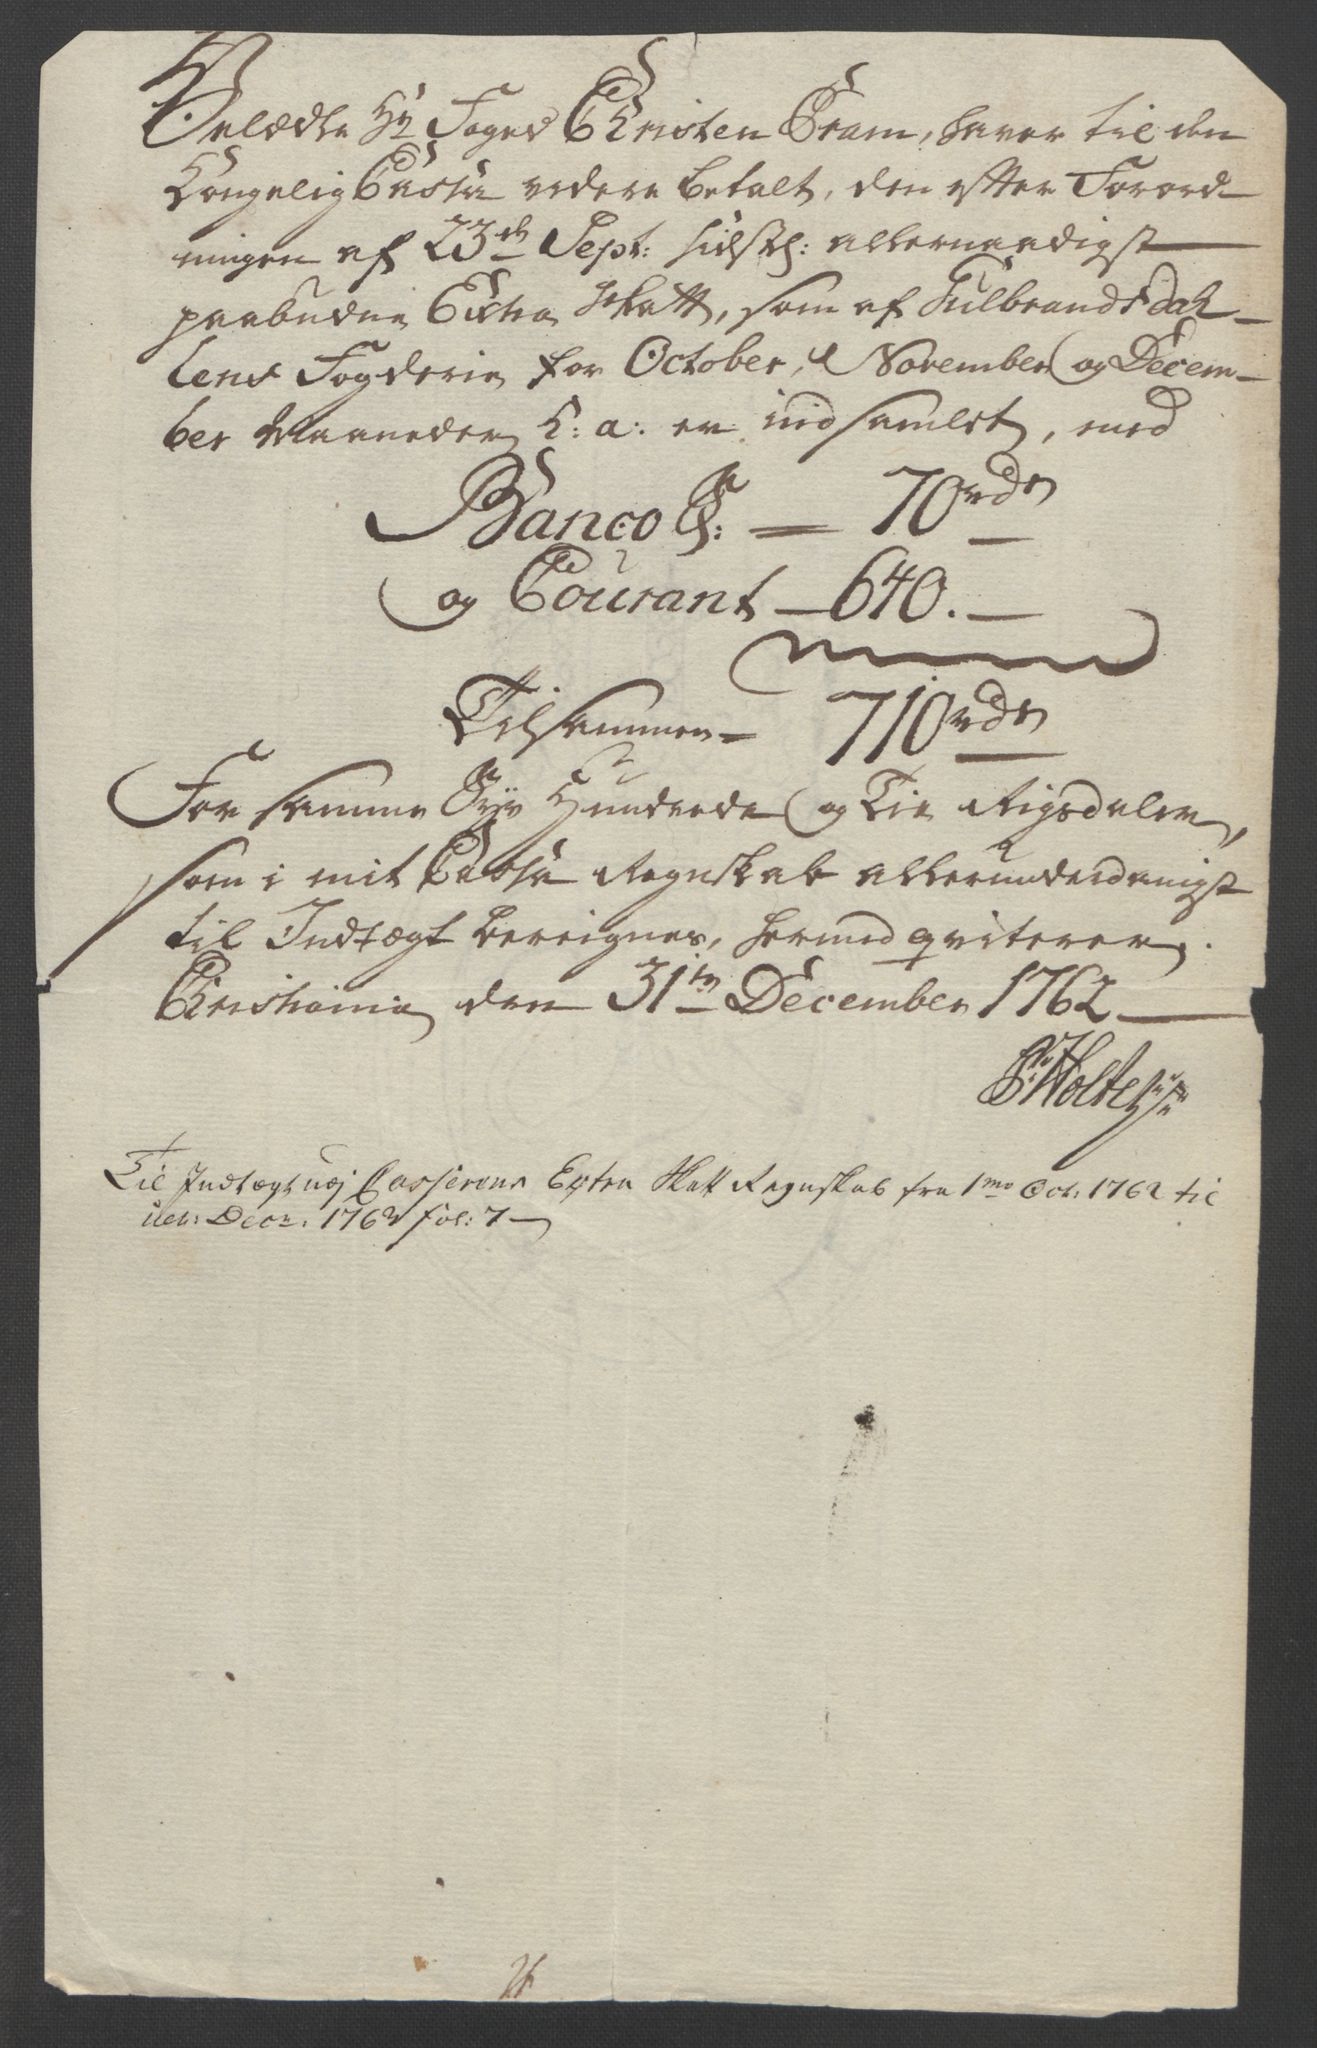 Velædle Hr Foged Christen Pram, haver til den
Kongelig Cassa videre betalt, den efter Forord-
ningen af 23de Sept: sidstl: allernaadigst
paabudne Extra Skatt, som af Gulbrandsdah-
lens Fogderie for October, November og Decem-
ber Maaneder h: a: er indsamlet, med
Banco S: — 70 rdr
og Courant — 640. —
Tilsammen — 710 rdr
For samme Syv Hundrede og Tie Rigsdaler,
som i mit Cassa Regnskab allerunderdanigst
til Indtægt bereignes, hermed qviterer.
Christiania den 31te December 1762
P: Holte
Til Indtægt Casserens Extra Skatt Regnskab fra 1mo Oct: 1762 til
ult: Decr: 1762 fol: 7